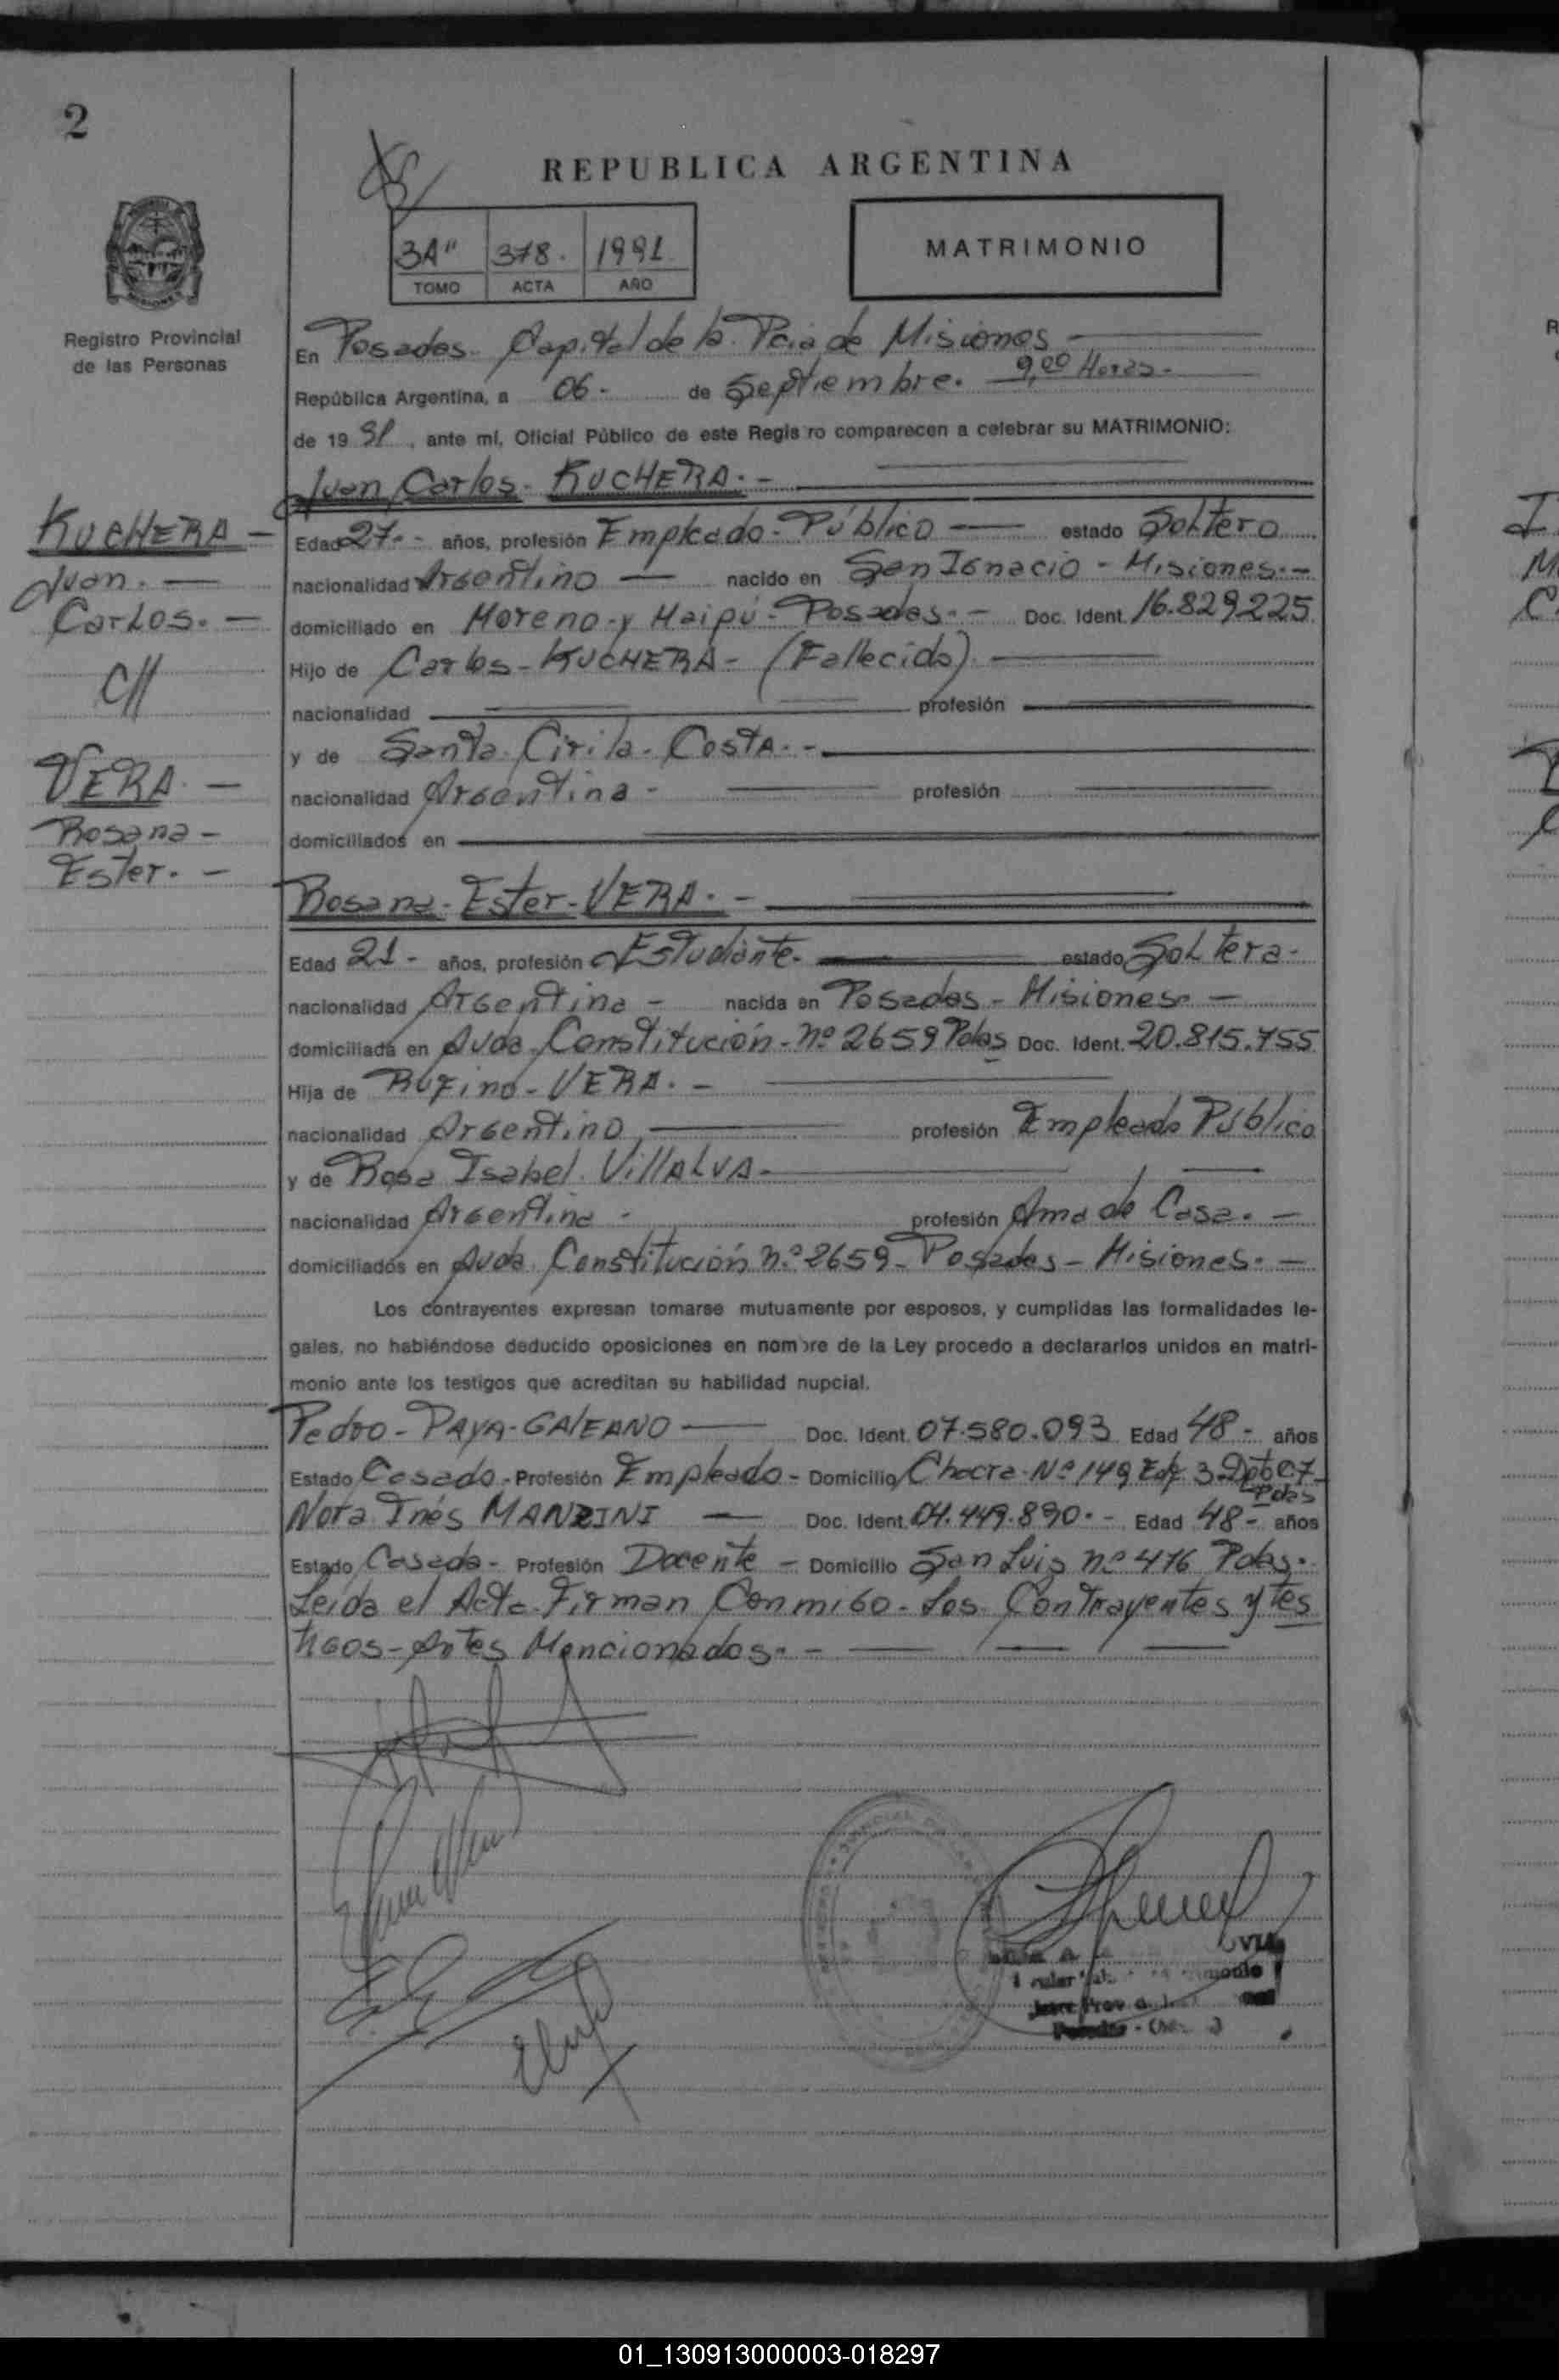 2
REPUBLICA ARGENTINA
3A" 378. 1991
TOMO ACTA AÑO
MATRIMONIO
Registro Provincial
de las Personas
En Posadas. Capital de la Pcia de Misiones
República Argentina, a 06. de Septiembre. 9,00 Horas.
de 19 91, ante mí, Oficial Público de este Regis ro comparecen a celebrar su MATRIMONIO:
Juan Carlos. KUCHERA.-
KUCHERA -
Juan. -
Carlos. -
C//
VERA. -
Rosana -
Ester. -
Edad 27.- años, profesión Empleado - Público — estado Soltero
nacionalidad Argentino — nacido en San Ignacio - Misiones.-
domiciliado en Moreno - y Maipú - Posadas. - Doc. Ident. 16.829225
Hijo de Carlos - KUCHERA - (Fallecido).
nacionalidad — profesión —
y de Santa. Cirila. Costa. -
nacionalidad Argentina - profesión —
domiciliados en —
Rosana - Ester - VERA. -
Edad 21 - años, profesión Estudiante. — estado Soltera -
nacionalidad Argentina - nacida en Posadas - Misiones. -
domiciliada en Avda. Constitución - Nº 2659 Pdas Doc. Ident. 20.815.755
Hija de Rufino - VERA. -
nacionalidad Argentino — profesión Empleado Público
y de Rosa Isabel. VillALVA -
nacionalidad Argentina - profesión Ama de Casa. -
domiciliados en Avda. Constitución Nº 2659 - Posadas - Misiones. -
Los contrayentes expresan tomarse mutuamente por esposos, y cumplidas las formalidades le-
gales, no habiéndose deducido oposiciones en nombre de la Ley procedo a declararlos unidos en matri-
monio ante los testigos que acreditan su habilidad nupcial.
Pedro - PAYA - GALEANO — Doc. Ident. 07.580.093 Edad 48 - años
Estado Casado - Profesión Empleado - Domicilio Chacra Nº 149 Edf. 3 - Dpto 07 -
Pdas
Nora Inés MANZINI — Doc. Ident. 04.449.890. - Edad 48 - años
Estado Casada - Profesión Docente - Domicilio San Luis Nº 416 Pdas.
Leida el Acta - Firman Conmigo - Los Contrayentes y tes
tigos - Antes Mencionados. -
01_130913000003-018297